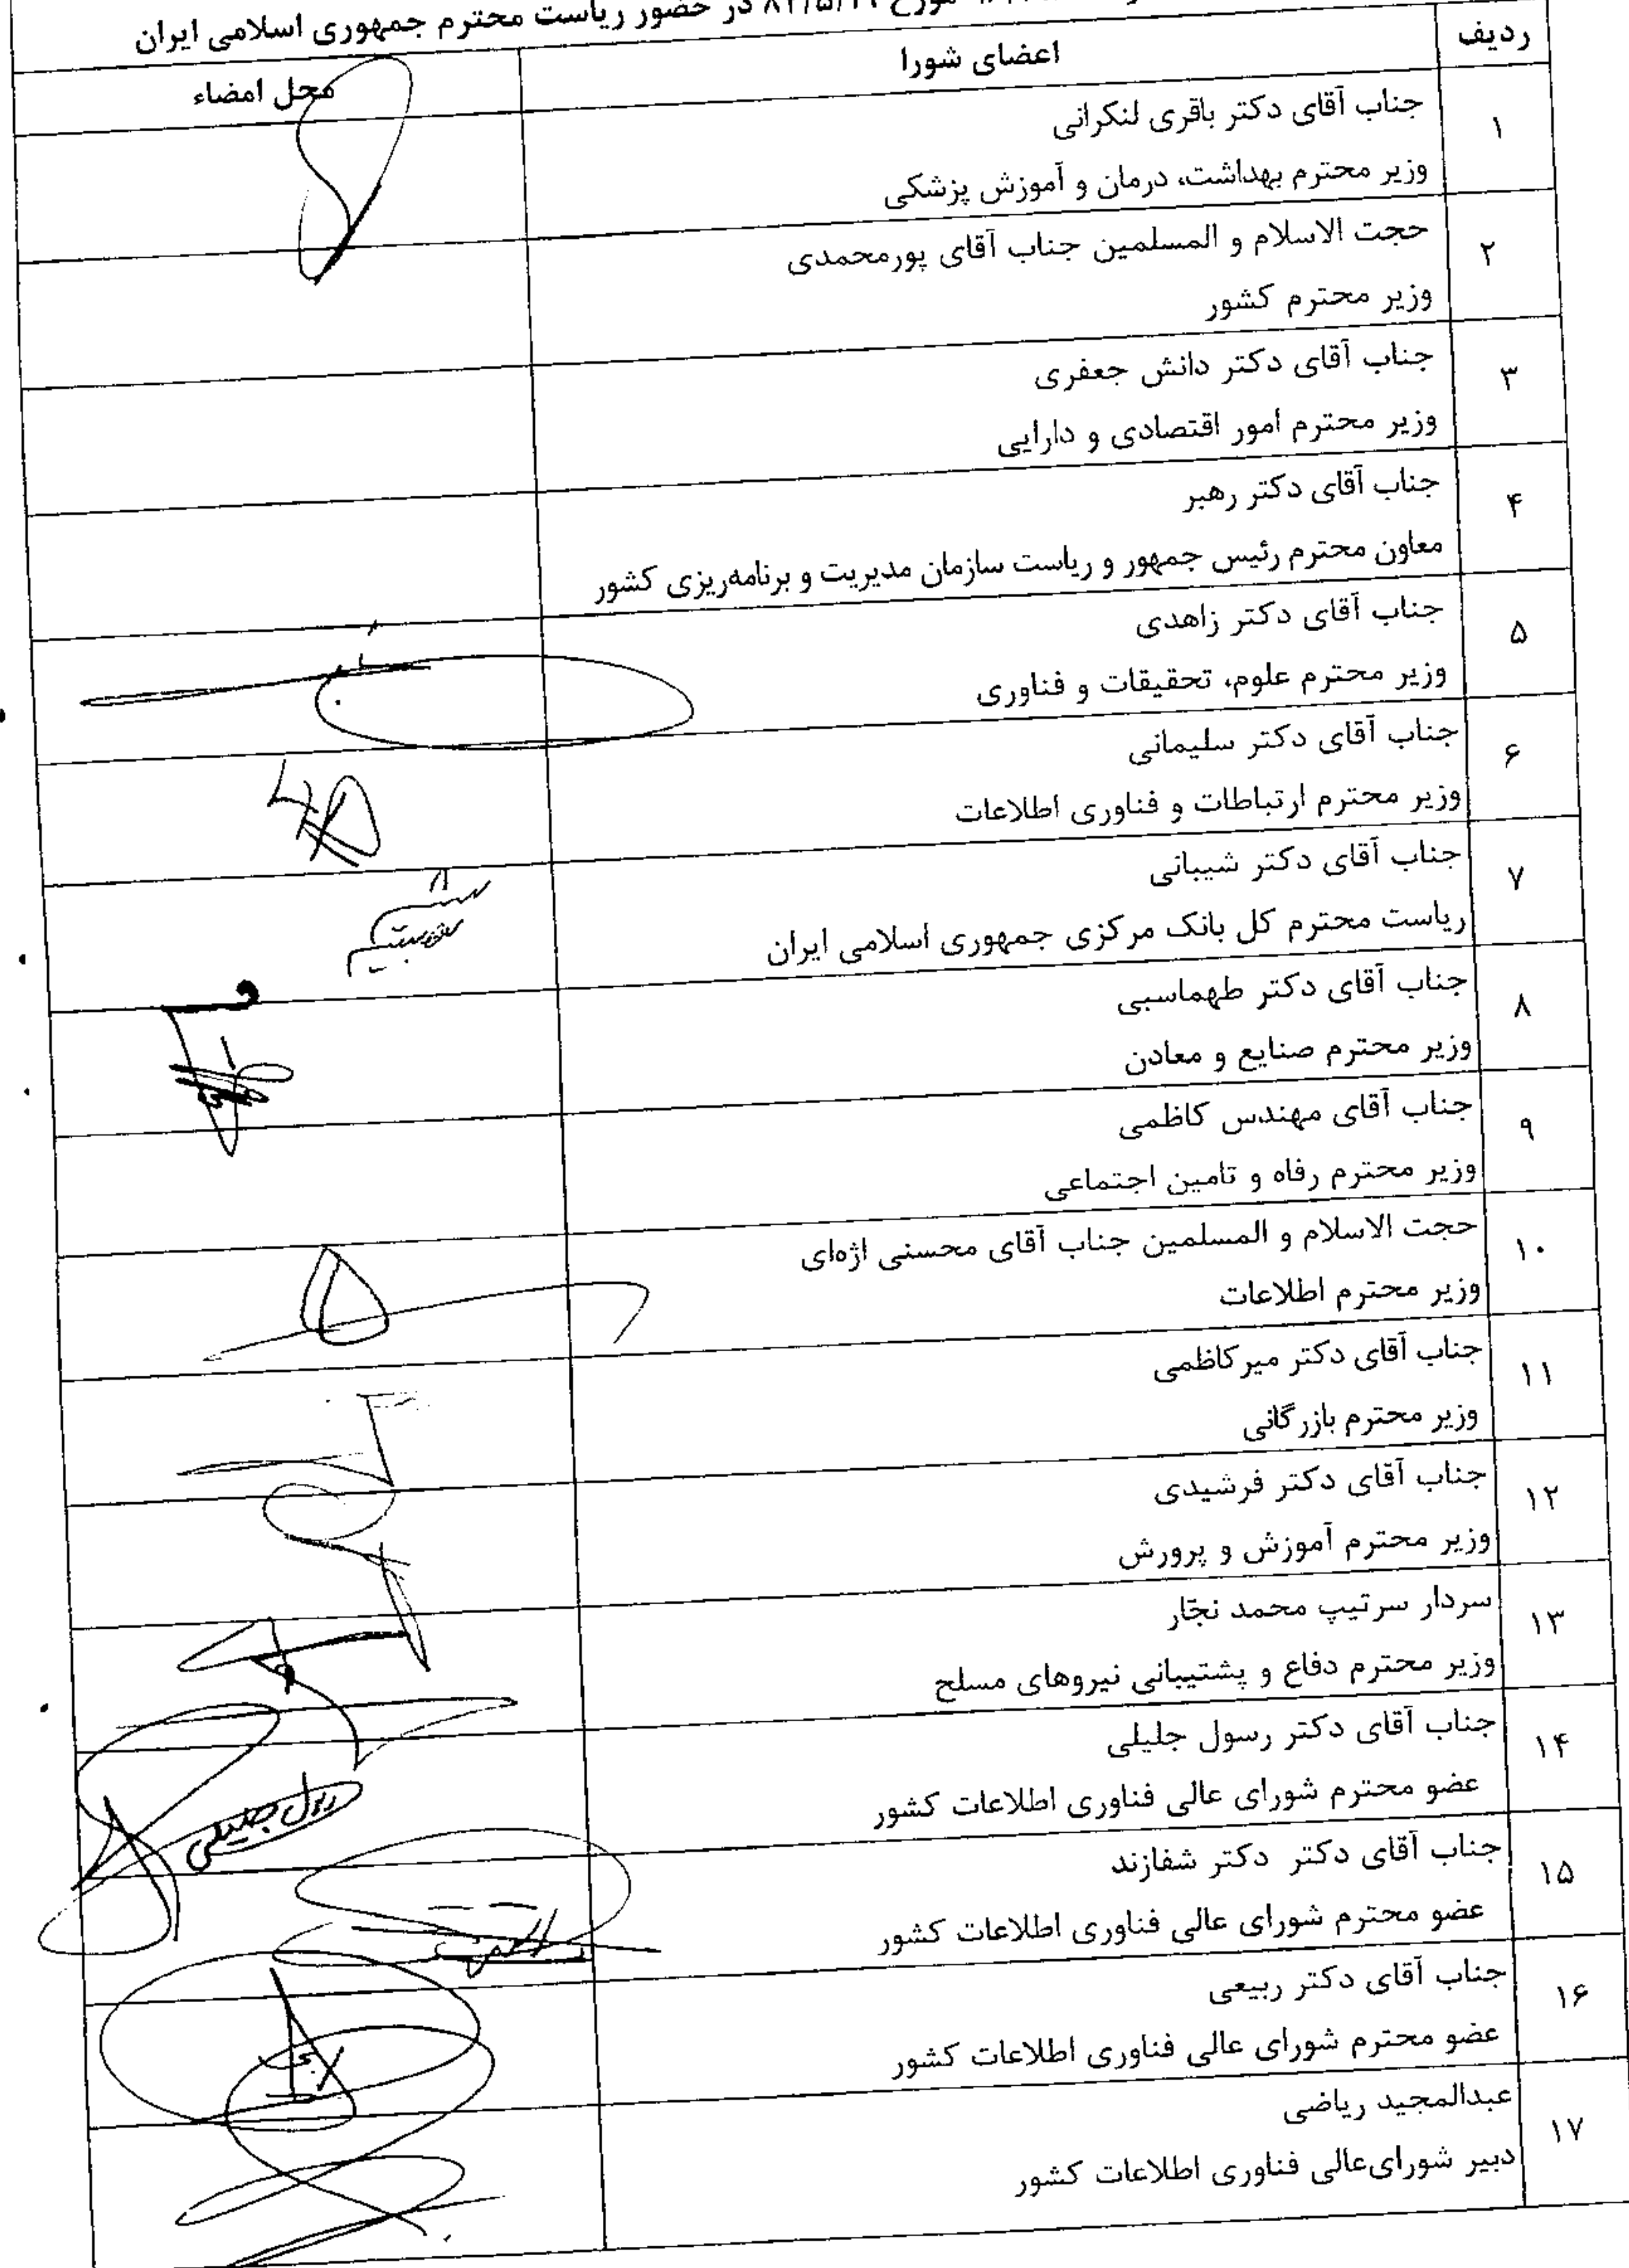 در حضور ریاست محترم جمهوری اسلامی ایران
ردیف
اعضای شورا
محل امضاء
۱
جناب آقای دکتر باقری لنکرانی
وزیر محترم بهداشت، درمان و آموزش پزشکی
۲
حجت الاسلام و المسلمین جناب آقای پورمحمدی
وزیر محترم کشور
۳
جناب آقای دکتر دانش جعفری
وزیر محترم امور اقتصادی و دارایی
۴
جناب آقای دکتر رهبر
معاون محترم رئیس جمهور و ریاست سازمان مدیریت و برنامه‌ریزی کشور
۵
جناب آقای دکتر زاهدی
وزیر محترم علوم، تحقیقات و فناوری
۶
جناب آقای دکتر سلیمانی
وزیر محترم ارتباطات و فناوری اطلاعات
۷
جناب آقای دکتر شیبانی
ریاست محترم کل بانک مرکزی جمهوری اسلامی ایران
۸
جناب آقای دکتر طهماسبی
وزیر محترم صنایع و معادن
۹
جناب آقای مهندس کاظمی
وزیر محترم رفاه و تامین اجتماعی
۱۰
حجت الاسلام و المسلمین جناب آقای محسنی اژه‌ای
وزیر محترم اطلاعات
۱۱
جناب آقای دکتر میرکاظمی
وزیر محترم بازرگانی
۱۲
جناب آقای دکتر فرشیدی
وزیر محترم آموزش و پرورش
۱۳
سردار سرتیپ محمد نجّار
وزیر محترم دفاع و پشتیبانی نیروهای مسلح
۱۴
جناب آقای دکتر رسول جلیلی
عضو محترم شورای عالی فناوری اطلاعات کشور
رسول جلیلی
۱۵
جناب آقای دکتر دکتر شفازند
عضو محترم شورای عالی فناوری اطلاعات کشور
۱۶
جناب آقای دکتر ربیعی
عضو محترم شورای عالی فناوری اطلاعات کشور
۱۷
عبدالمجید ریاضی
دبیر شورای‌عالی فناوری اطلاعات کشور